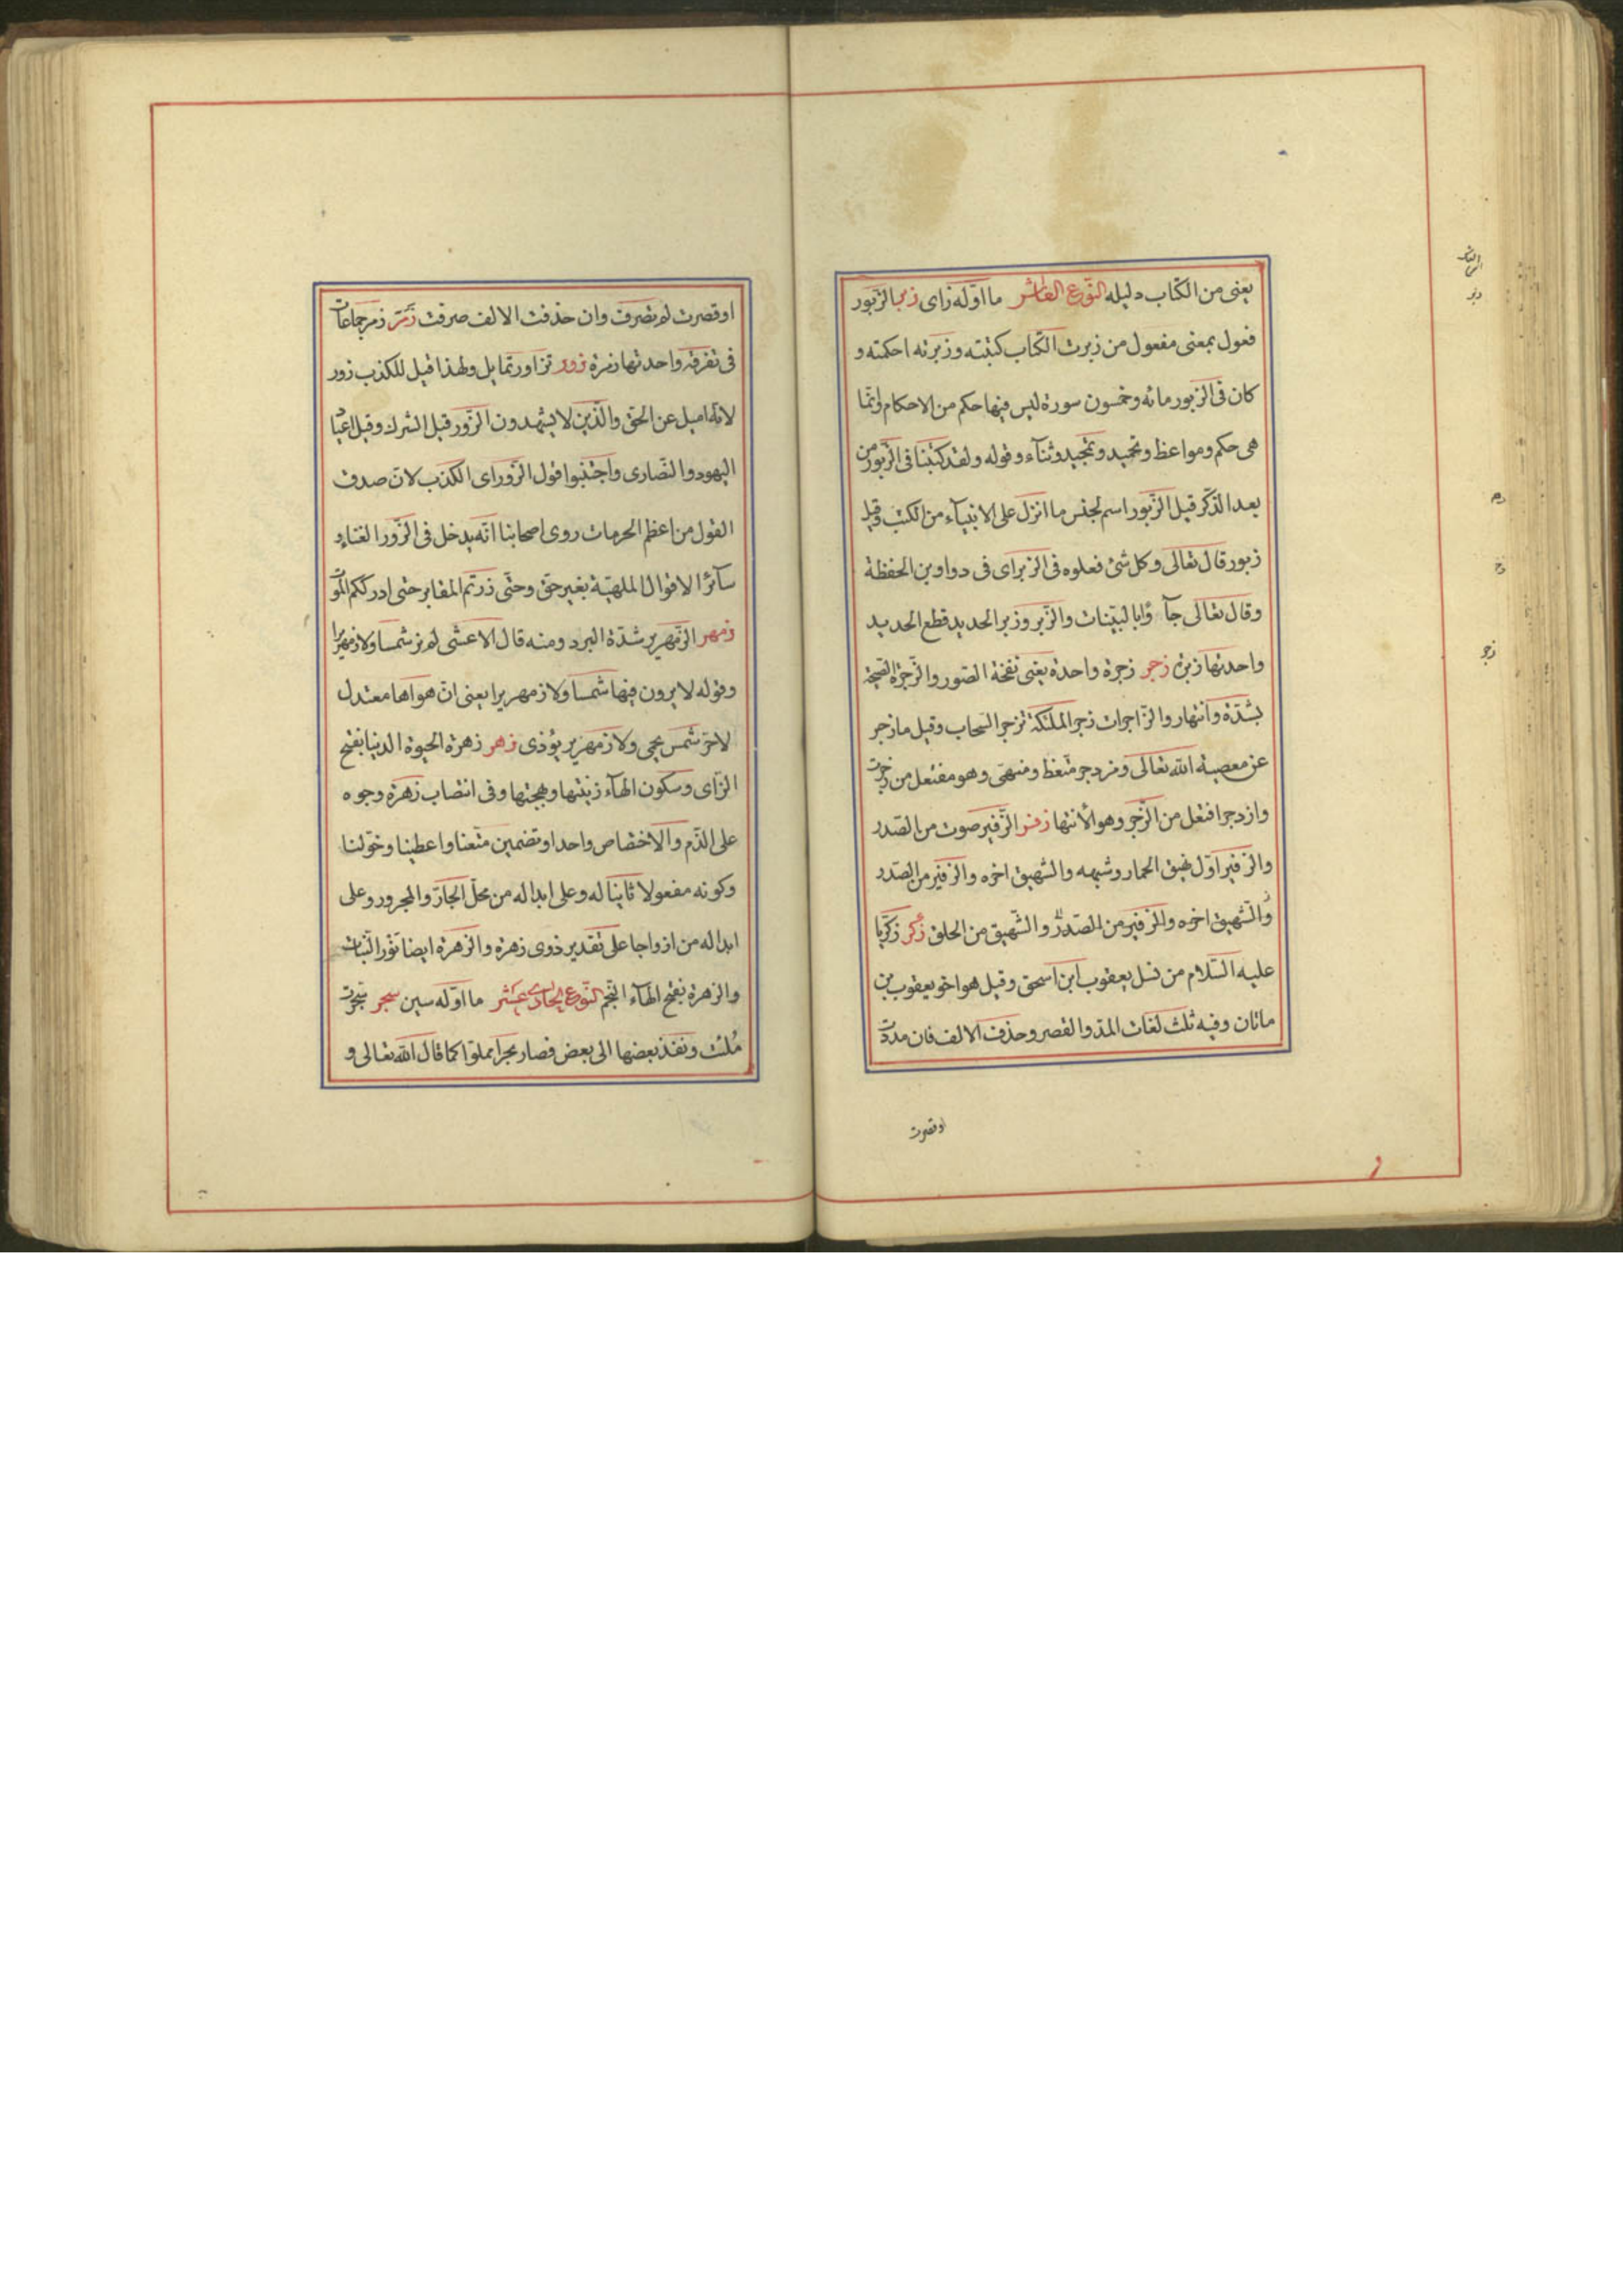 يعنى من الكتاب دليله النوع العاشر ما اوّله زاى زبر الزّبور
فعول بمعنى مفعول من زبرت الكتاب كتبته وزبرته احكمته و
كان فى الزبور مائه وخمسون سورة ليس فيها حكم من الاحكام وانّما
هى حكم ومواعظ وتحميد وتمجيد وثنآء وقوله ولقد كتبنا فى الزّبور من
بعد الذّكر قيل الزّبور اسم لجنس ما انزل على الانبيآء من الكتب وقيل
زبور قال تعالى وكل شئ فعلوه فى الزبر اى فى دواوين الحفظة
وقال تعالى جآؤا بالبيّنات والزّبر وزبر الحديد قطع الحديد
واحدتها زبرة زجر زجرة واحدة يعنى نفخة الصّور والزّجرة الصّيحة
بشدّة وانتهار والزّاجرات زجرا الملئكة تزجر السّحاب وقيل ما زجر
عن معصية الله تعالى ومزدجر متّعظ ومنتهى وهو مفتعل من زجرت
وازدجر افتعل من الزّجر وهو الأنتها زفر الزّفير صوت من الصّدر
والزفير اوّل نهيق الحمار وشبهه والشهيق اخره والزفير من الصّدر
والشّهيق اخره والزفير من الصّدر والشّهيق من الحلق زكر زكريّا
عليه السّلام من نسل يعقوب ابن اسحق وقيل هو اخو يعقوب بن
ماثان وفيه ثلث لغات المدّ والقصر وحذف الالف فان مددت
او قصرت
او قصرت لم تصرف وان حذفت الالف صرفت زمر زمر جماعات
فى تفرقه واحدتها زمرة زور تزاور تمايل ولهذا قيل للكذب زور
لانّه اميل عن الحق والّذين لا يشهدون الزّور قيل الشرك وقيل اعياد
اليهود والنّصارى واجتنبوا قول الزّور اى الكذب لانّ صدق
القول من اعظم الحرمات روى اصحابنا انّه يدخل فى الزّور الغناء و
سآئر الاقوال الملهيّة بغير حق وحتّى زرتم المقابر حتى ادرككم الموت
زمهر الزّمهرير شدّة البرد ومنه قال الاعشى لم تر شمسا ولا زمهريرا
وقوله لا يرون فيها شمسا ولا زمهريرا يعنى انّ هواها معتدل
لا حرّ شمس يحمى ولا زمهرير يؤذى زهر زهرة الحيوة الدنيا بفتح
الزّاى وسكون الهآء زينتها وبهجتها وفى انتصاب زهرة وجوه
على الذّم والاختصاص واحدا وتضمين متّعنا واعطينا وخوّلنا
وكونه مفعولا ثانيا له وعلى ابداله من محلّ الجارّ والمجرور وعلى
ابداله من ازواجا على تقدير ذوى زهرة والزهرة ايضا نور النّبات
والزهرة بفتح الهآء النّجم النّوع الحادى عشر ما اوّله سين سجر سجّرت
مُلئت ونفذ بعضها الى بعض فصار بحرا مملوّا كما قال الله تعالى و
زبر
زجر